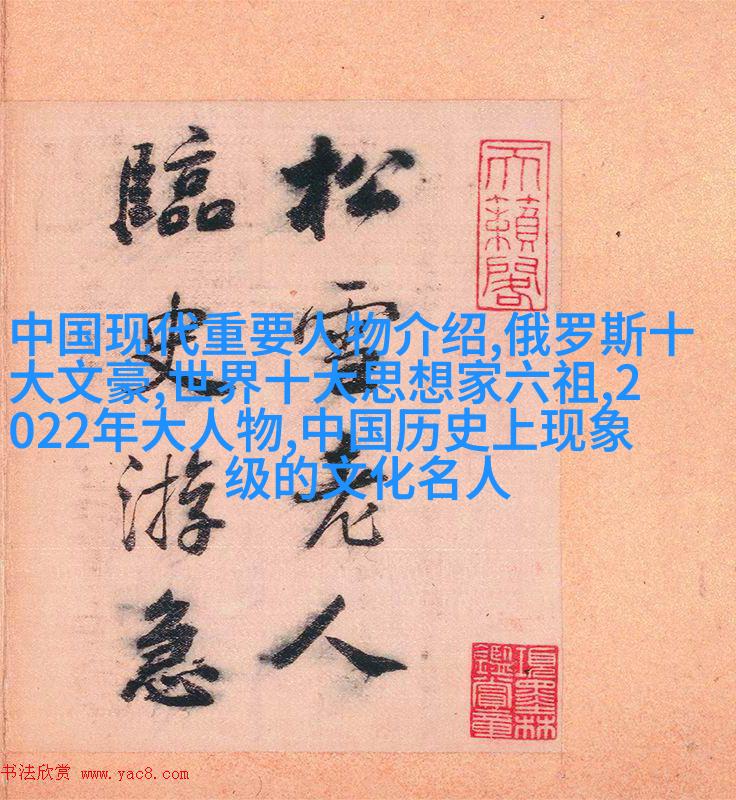 松雪老人
臨史游急
天籟閣
項墨林
鑑賞章
中国现代重要人物介绍,俄罗斯十
大文豪,世界十大思想家六祖,2
022年大人物,中国历史上现象
级的文化名人
书法欣赏 www.yac8.com